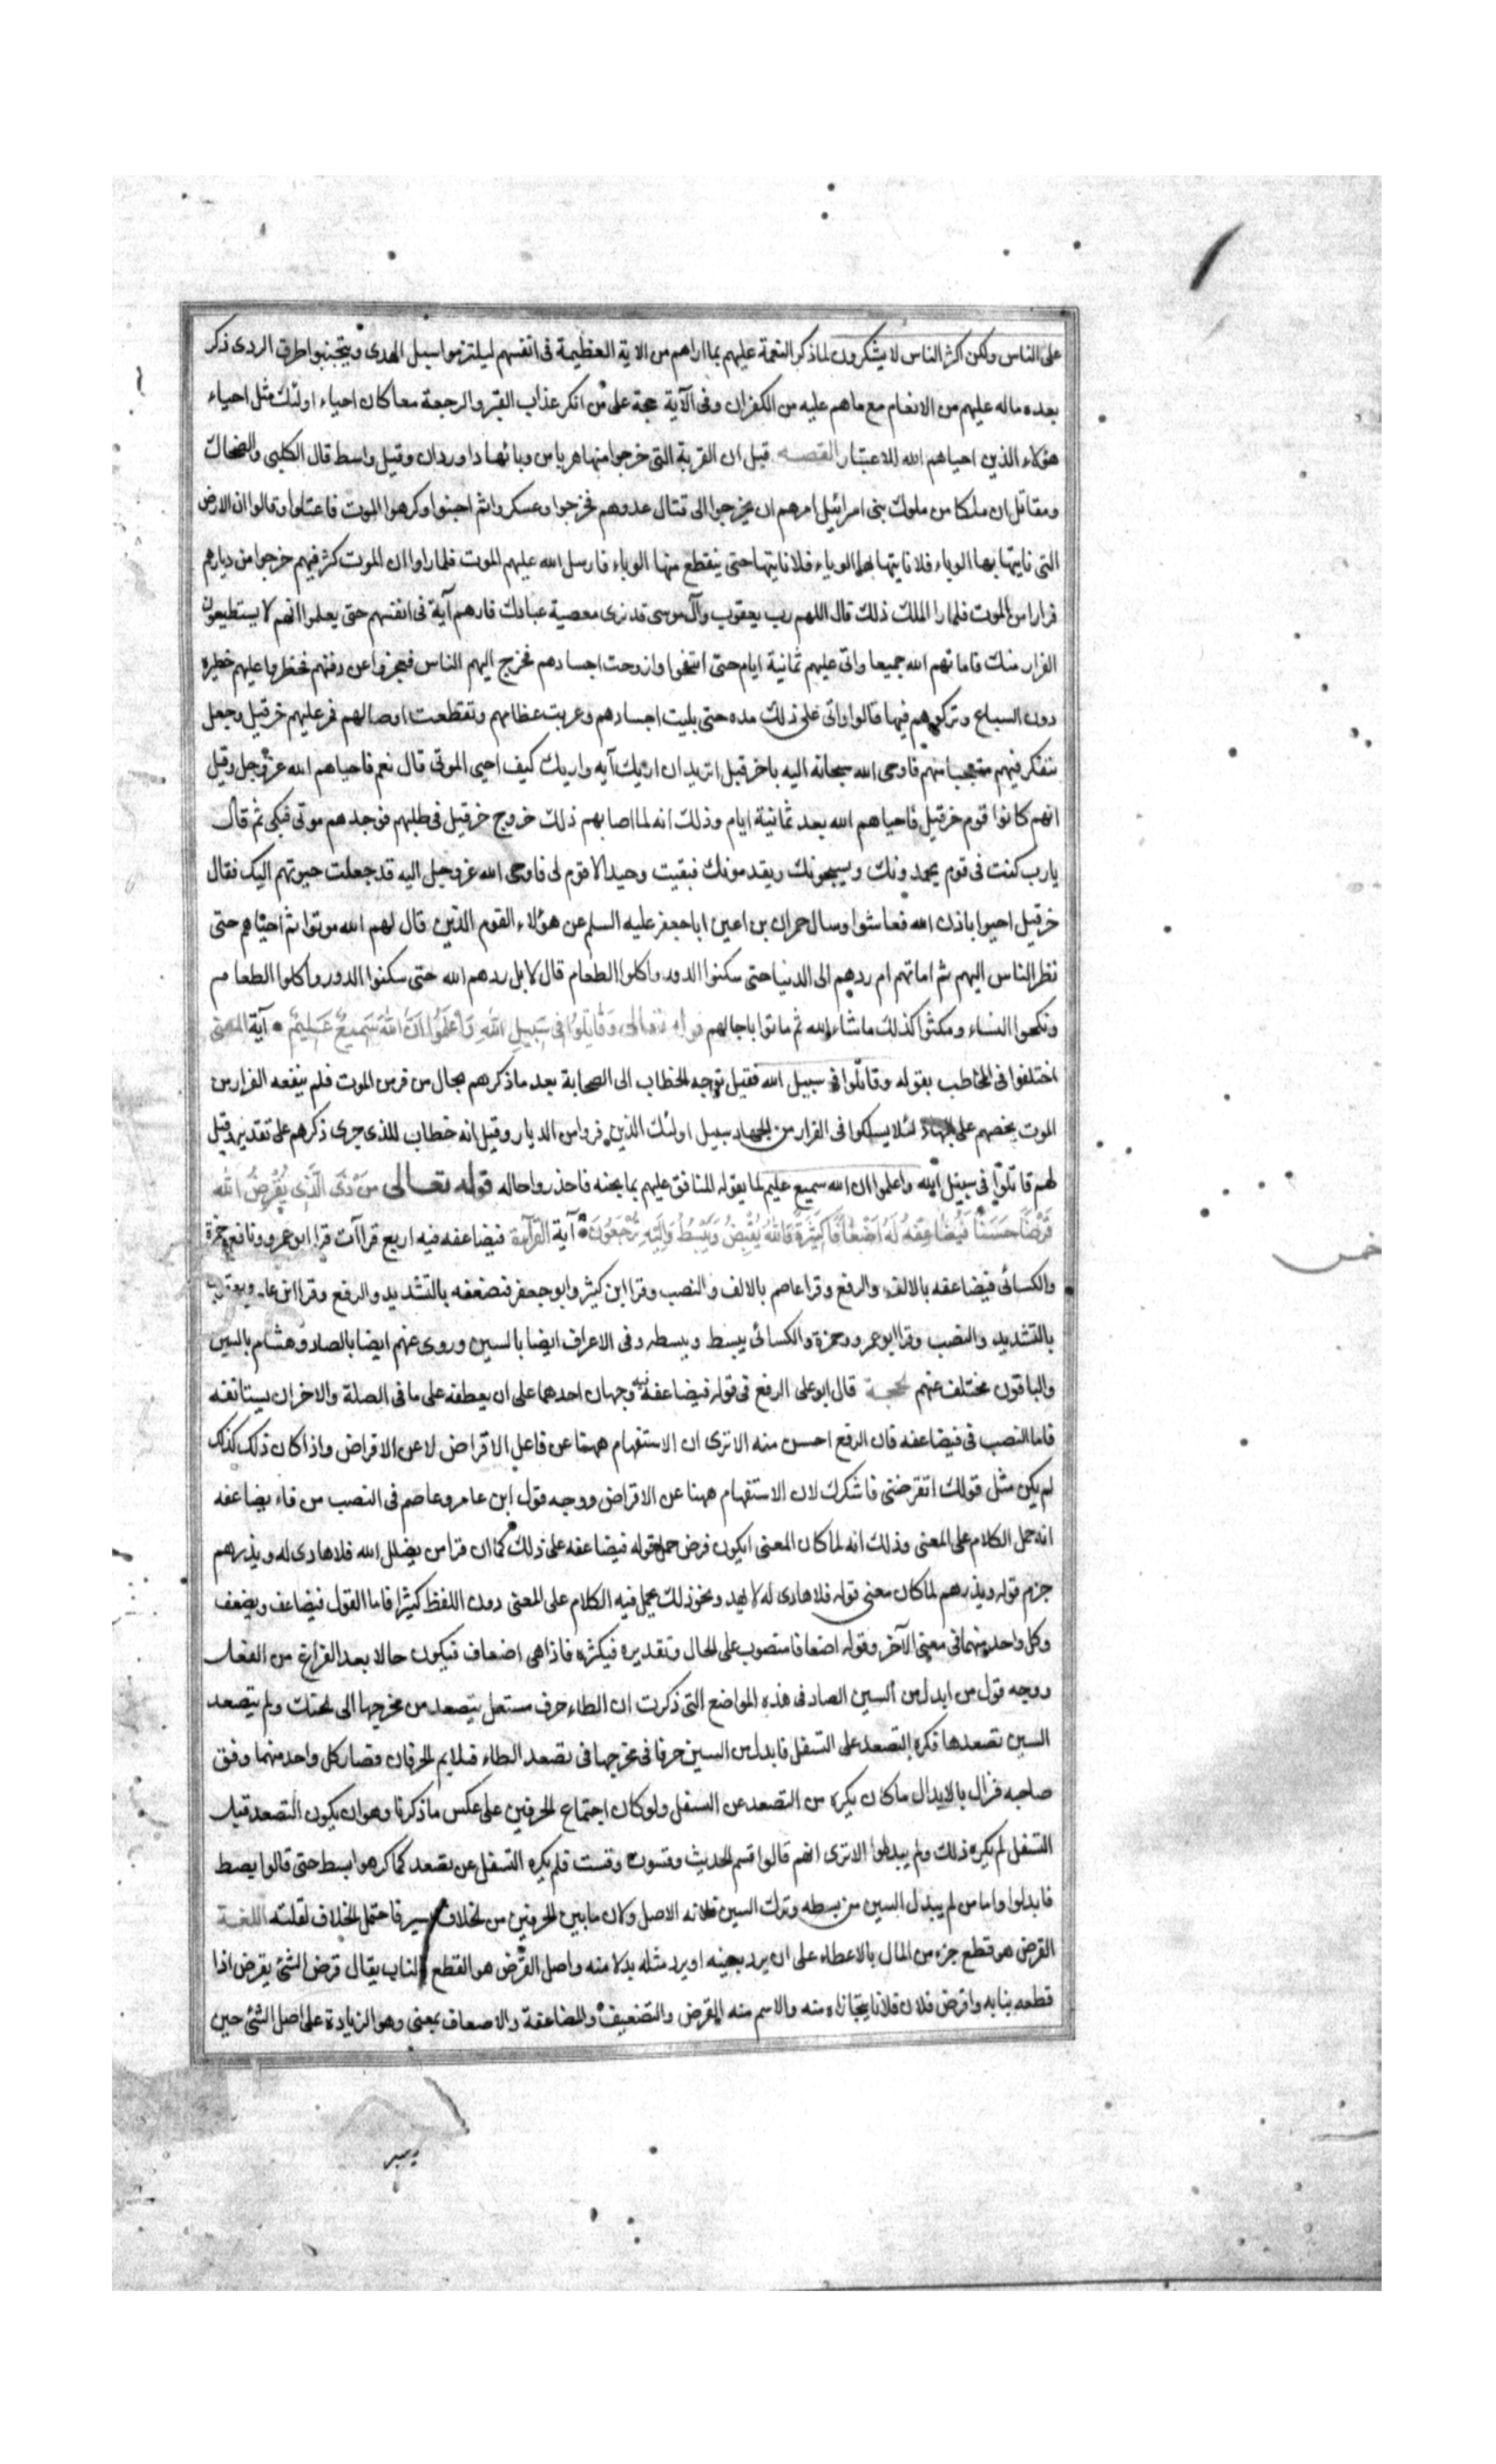 على الناس ولكن اكثر الناس لا يشكرون لما ذكر النعمة عليهم بما اراهم من الاية العظيمة فى انفسهم ليلتزموا سبيل الهدى ويتجنبوا طرق الردى ذكر
بعده ماله عليهم من الانعام مع ماهم عليه من الكفران وفى الآية حجة على من انكر عذاب القبر والرجعة معا كان احياء اولئك مثل احياء
هؤلاء الذين احياهم الله للاعتبار القصه قيل ان القرية التى خرجوا منها هربا من وبائها داوردان وقيل واسط قال الكلبى والضحاك
ومقاتل ان ملكا من ملوك بنى اسرائيل امرهم ان يخرجوا الى قتال عدوهم فخرجوا وعسكروا ثم اجبنوا وكرهوا الموت فاعتلوا وقالوا ان الارض
التى ناتيها بها الوباء فلا ناتيها حتى ينقطع منها الوباء فارسل الله عليهم الموت فلما راوا ان الموت كثر فيهم خرجوا من ديارهم
فرارا من الموت فلما را الملك ذلك قال اللهم رب يعقوب وآله موسى قد نرى معصية عبادك فارهم آية فى انفسهم حتى يعلموا انهم لا يستطيعون
الفرار منك فاماتهم الله جميعا واتى عليهم ثمانية ايام حتى انتفخوا واروحت اجسادهم فخرج اليهم الناس فعجزوا عن دفنهم فحظروا عليهم خطيره
دون السباع وتركوهم فيها قالوا واتى على ذلك مده حتى بليت اجسادهم وعريت عظامهم وتقطعت اوصالهم فمر عليهم خرقيل وجعل
يتفكر فيهم متعجبا منهم فاوحى الله سبحانه اليه ياخرقيل اتريد ان اريك آيه واريك كيف احيى الموتى قال نعم فاحياهم الله عزوجل وقيل
انهم كانوا قوم خرقيل فاحياهم الله بعد ثمانية ايام وذلك انه لما اصابهم ذلك خروج خرقيل فى طلبهم فوجدهم موتى فبكى ثم قال
يارب كنت فى قوم يحمدونك ويسبحونك ويقدسونك فبقيت وحيدا لا قوم لى فاوحى الله عزوجل اليه قد جعلت حيوتهم اليك فقال
خرقيل احيوا باذن الله فعاشوا وسال حمران بن اعين اباجعفر عليه السلم عن هؤلاء القوم الذين قال لهم الله موتوا ثم احياهم حتى
نظر الناس اليهم ثم اماتهم ام ردهم الى الدنيا حتى سكنوا الدور واكلوا الطعام قال لا بل ردهم الله حتى سكنوا الدور واكلوا الطعام
ونكحوا النساء ومكثوا كذلك ماشاء الله ثم ماتوا باجالهم قوله تعالى وَقَاتِلُوا فِى سَبِيلِ اللهِ وَاعْلَمُوا اَنَّ اللهَ سَمِيعٌ عَلِيمٌ آية المعنى
اختلفوا فى المخاطب بقوله وقاتلوا فى سبيل الله فقيل توجه الخطاب الى الصحابة بعد ما ذكرهم بحال من فر من الموت فلم ينفعه الفرار من
الموت يحضهم على الجهاد لئلا يسلكوا فى الفرار من الجهاد سبيل اولئك الذين فروا من الديار وقيل انه خطاب للذى جرى ذكرهم على تقدير وقيل
لهم قاتلوا فى سبيل الله واعلموا ان الله سميع عليم لما يقوله المنافق عليهم بما يجنه فاحذروا حاله قوله تعالى مَنْ ذَى الَّذِى يُقْرِضُ اللهَ
قَرْضًا حَسَنًا فَيُضَاعِفَهُ لَهُ اَضْعَافًا كَثِيرَةً وَاللهُ يَقْبِضُ وَيَبْسُطُ وَاِلَيْهِ تُرْجَعُونَ آية القرآءة فيضاعفه فيه اربع قراآت قرا ابوعمرو ونافع وحمزة
والكسائى فيضاعفه بالالف والرفع وقرا عاصم بالالف والنصب وقرا ابن كثير وابوجعفر فنضعفه بالتشديد والرفع وقرا ابن عامر ويعقوب
بالتشديد والنصب وقرا ابوعمرو وحمزة والكسائى يبسط وبسطه وفى الاعراف ايضا بالسين وروى عنهم ايضا بالصاد وهشام بالسين
والباقون مختلف عنهم الحجة قال ابوعلى الرفع فى قوله فيضاعفه وجهان احدهما على ان يعطفه على ما فى الصلة والاخر ان يستانفه
فاما النصب فى فيضاعفه فان الرفع احسن منه الا ترى ان الاستفهام ههنا عن فاعل الاقراض لا عن الاقراض واذا كان ذلك كذلك
لم يكن مثل قولك اتقرضنى فاشكرك لان الاستفهام ههنا عن الاقراض ووجه قول ابن عامر وعاصم فى النصب من فاء يضاعفه
انه حمل الكلام على المعنى وذلك انه لما كان المعنى ايكون قرض حمل قوله فيضاعفه على ذلك كما ان قرا من يضلل الله فلا هادى له ويذرهم
جزم قوله ويذرهم لما كان معنى قوله فلا هادى له لا يهد ونحو ذلك يحمل فيه الكلام على المعنى دون اللفظ كثيرا فاما القول فيضاعف ويضعف
وكل واحد منهما فى معنى الآخر وقوله اضعافا منصوب على الحال وتقديره فيكثره فاذا هى اضعاف فيكون حالا بعد الفراغ من الفعل
ووجه قول من ابدل من السين الصاد فى هذه المواضع التى ذكرت ان الطاء حرف مستعل يتصعد من مخرجها الى الحنك ولم يتصعد
السين تصعدها فكره التصعد على التسفل فابدل من السين حرفا فى مخرجها فى تصعد الطاء فتلايم الحرفان وصار كل واحد منهما وفق
صاحبه فزال بالابدال ما كان يكره من التصعد عن التسفل ولو كان اجتماع الحرفين على عكس ما ذكرنا وهو ان يكون التصعد قبل
التسفل لم يكره ذلك ولم يبدلوا الا ترى انهم قالوا قسم الحديث وقسوت وقست فلم يكره التسفل عن تصعد كما كرهوا بسط حتى قالوا يصط
فابدلوا واما من لم يبدل السين من بسطه وترك السين فلانه الاصل ولان مابين الحرفين من الخلاف يسير فاحتمل الخلاف لقلته اللغة
القرض هو قطع جزء من المال بالاعطاء على ان يرد بعينه او يرد مثله بدلا منه واصل القرض هو القطع بالناب يقال قرض الشئ يقرض اذا
قطعه بنابه واقرض فلان فلانا يتجازاه منه والاسم منه القرض والتضعيف والمضاعفة والاضعاف بمعنى وهو الزيادة على اصل الشئ حين